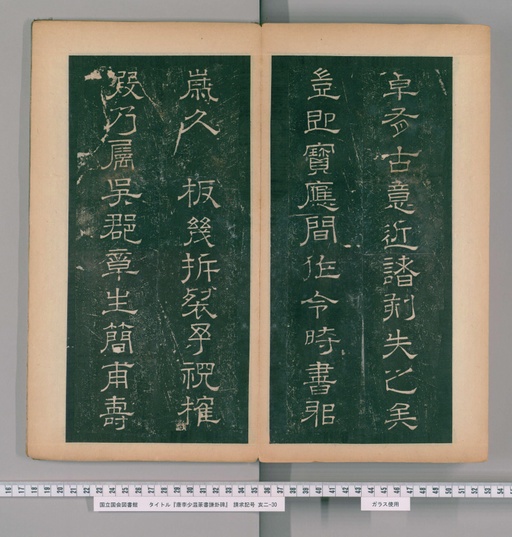 卓有古意近諸刻失之矣
豈即寶應間任令時書邪
歲久 板幾拆裂予視搉
段乃屬吳郡章生簡甫壽
国立国会図書館 タイトル『唐李少温篆書謙卦碑』 請求記号 亥二-30 ガラス使用